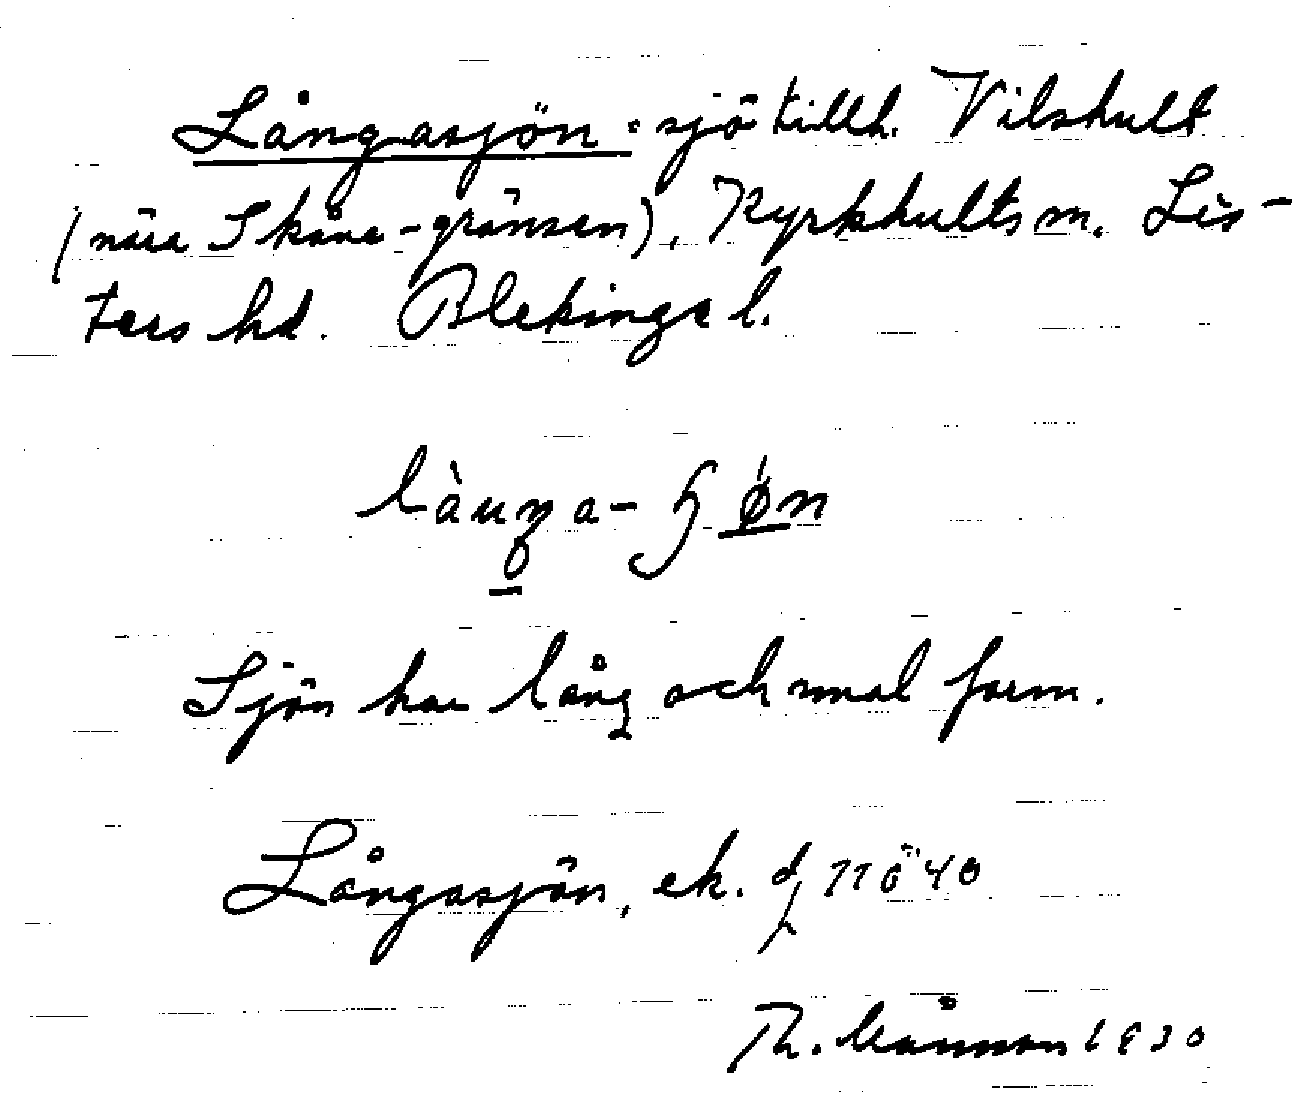 Långasjön: sjö tillh. Vilshult
(nära Skåne-gränsen), Kyrkhults m. Lis-
ters hd. Blekinge l.
Sjön har lång och smal form.
Långasjön, ek. 11 ö 40
Th. 1930